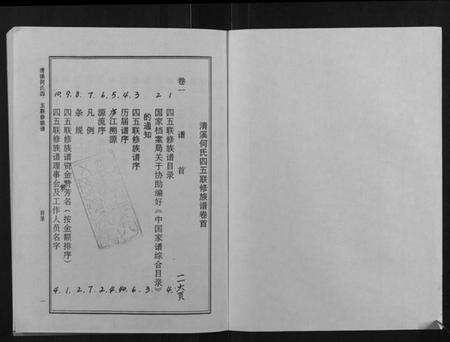 清溪何氏四五联修族谱卷首
卷一　谱首　一一六頁
1. 四五联修族谱目录 4.
2. 国家档案局关于协助编好《中国家谱综合目录》
的通知 3.
3. 四五联修族谱序 6.
4. 历届谱序
5. 庐江溯源
6. 源流序 2.
7. 凡例 7.
8. 条规 2.
9. 四五联修族谱资金芳名（按金额排序） 1.
10. 四五联修族谱理事会及工作人员名字 4.
清溪何氏四、五联修族谱
目录
一